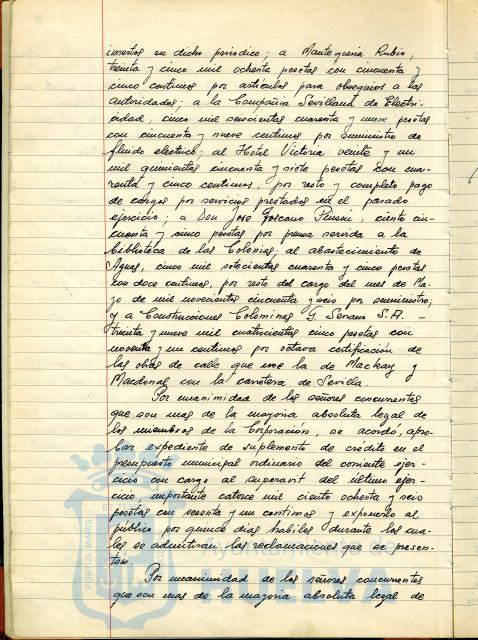 insertos en dicho periodico; a Mantequeria Rubio,
treinta y cinco mil ochenta pesetas con cincuenta y
cinco centimos por artículos para obsequios a las
autoridades; a la Compañia Sevillana de Electri-
cidad, cinco mil seiscientas cuarenta y nueve pesetas
con cincuenta y nueve centimos por suministro de
fluido electrico; al Hotel Victoria veinte y un
mil quinientas cincuenta y siete pesetas con cua-
renta y cinco centimos, por resto y completo pago
de cargos por servicios prestados en el pasado
ejercicio; a Don Jose Toscano, ciento cin-
cuenta y cinco pesetas por prensa servida a la
biblioteca de las Colonias; al abastecimiento de
Aguas, cinco mil setecientas cuarenta y cinco pesetas
con doce centimos, por resto del cargo del mes de Ma-
yo de mil novecientos cincuenta y seis por suministro;
y a Construcciones Colominas G. Serrano S.A. -
treinta y nueve mil cuatrocientas cinco pesetas con
noventa y un centimos por octava certificación de
las obras de calle que une la de Mackay y
Macdonal con la carretera de Sevilla.
Por unanimidad de los señores concurrentes
que son mas de la mayoria absoluta legal de
los miembros de la Corporación, se acordó, apro-
bar expediente de suplemento de crédito en el
presupuesto municipal ordinario del corriente ejer-
cicio con cargo al superavit del último ejer-
cicio, importante catorce mil ciento ochenta y seis
pesetas con sesenta y un centimos y exponerlo al
público por quince dias habiles durante los cua-
les se admitiran las reclamaciones que se presen-
ten.
Por unanimidad de los señores concurrentes
que son mas de la mayoria absoluta legal de
PORTUS MARIS
Ayuntamiento de
HUELVA